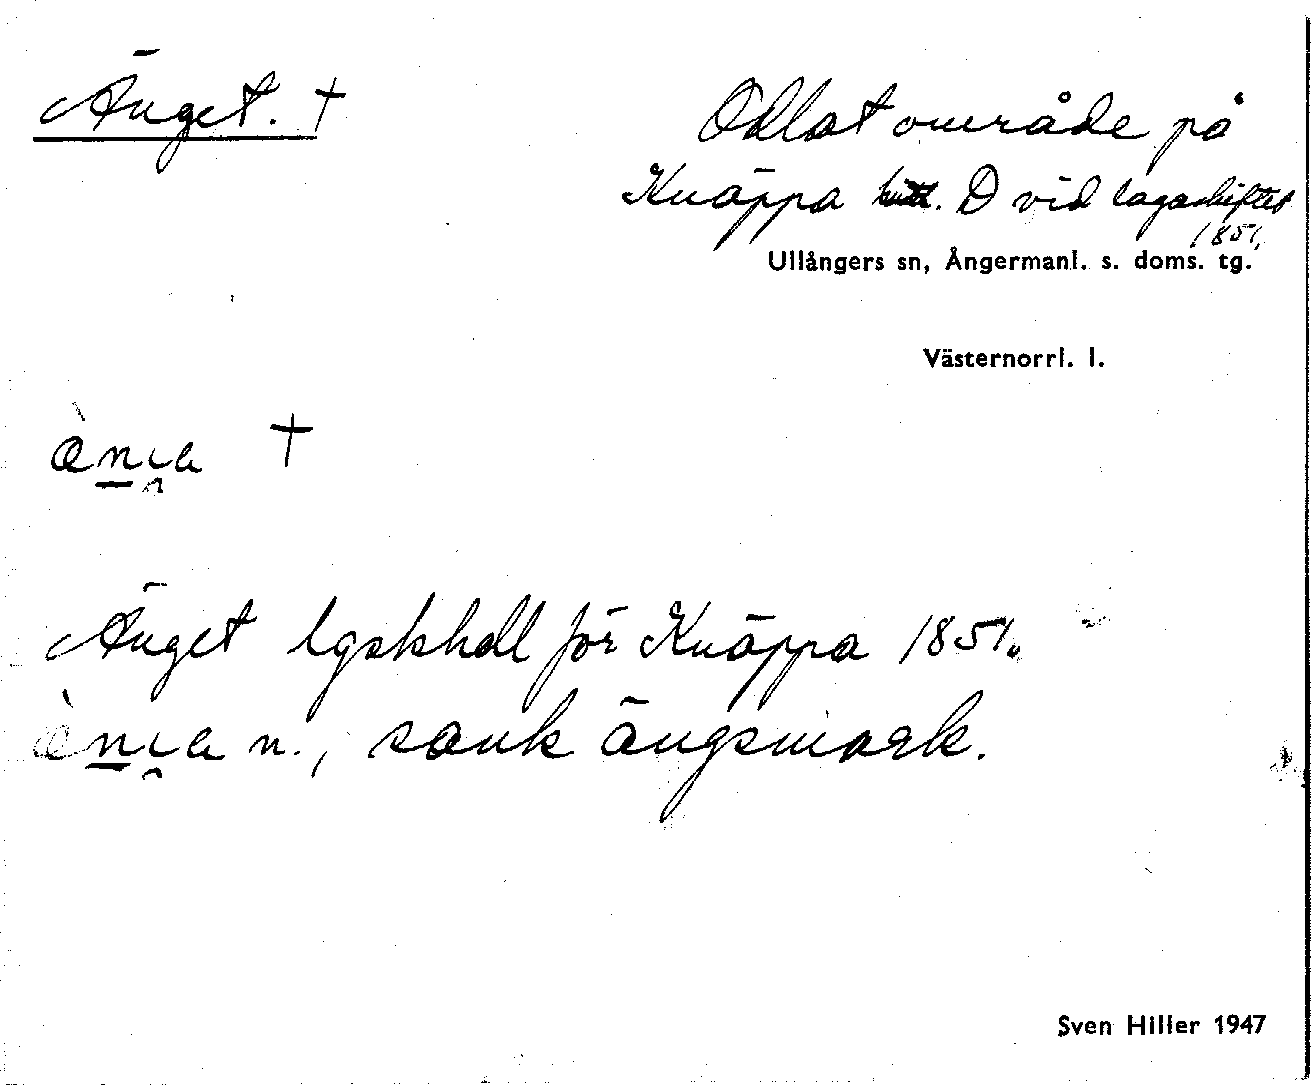 Änget. †
Odlat område på
Knäppa litt. D vid lagaskiftet
1851.
Ullångers sn, Ångermanl. s. doms. tg.
Västernorrl. l.
†
Änget lgskhdl för Knäppa 1851.
n., sank ängsmark.
Sven Hiller 1947